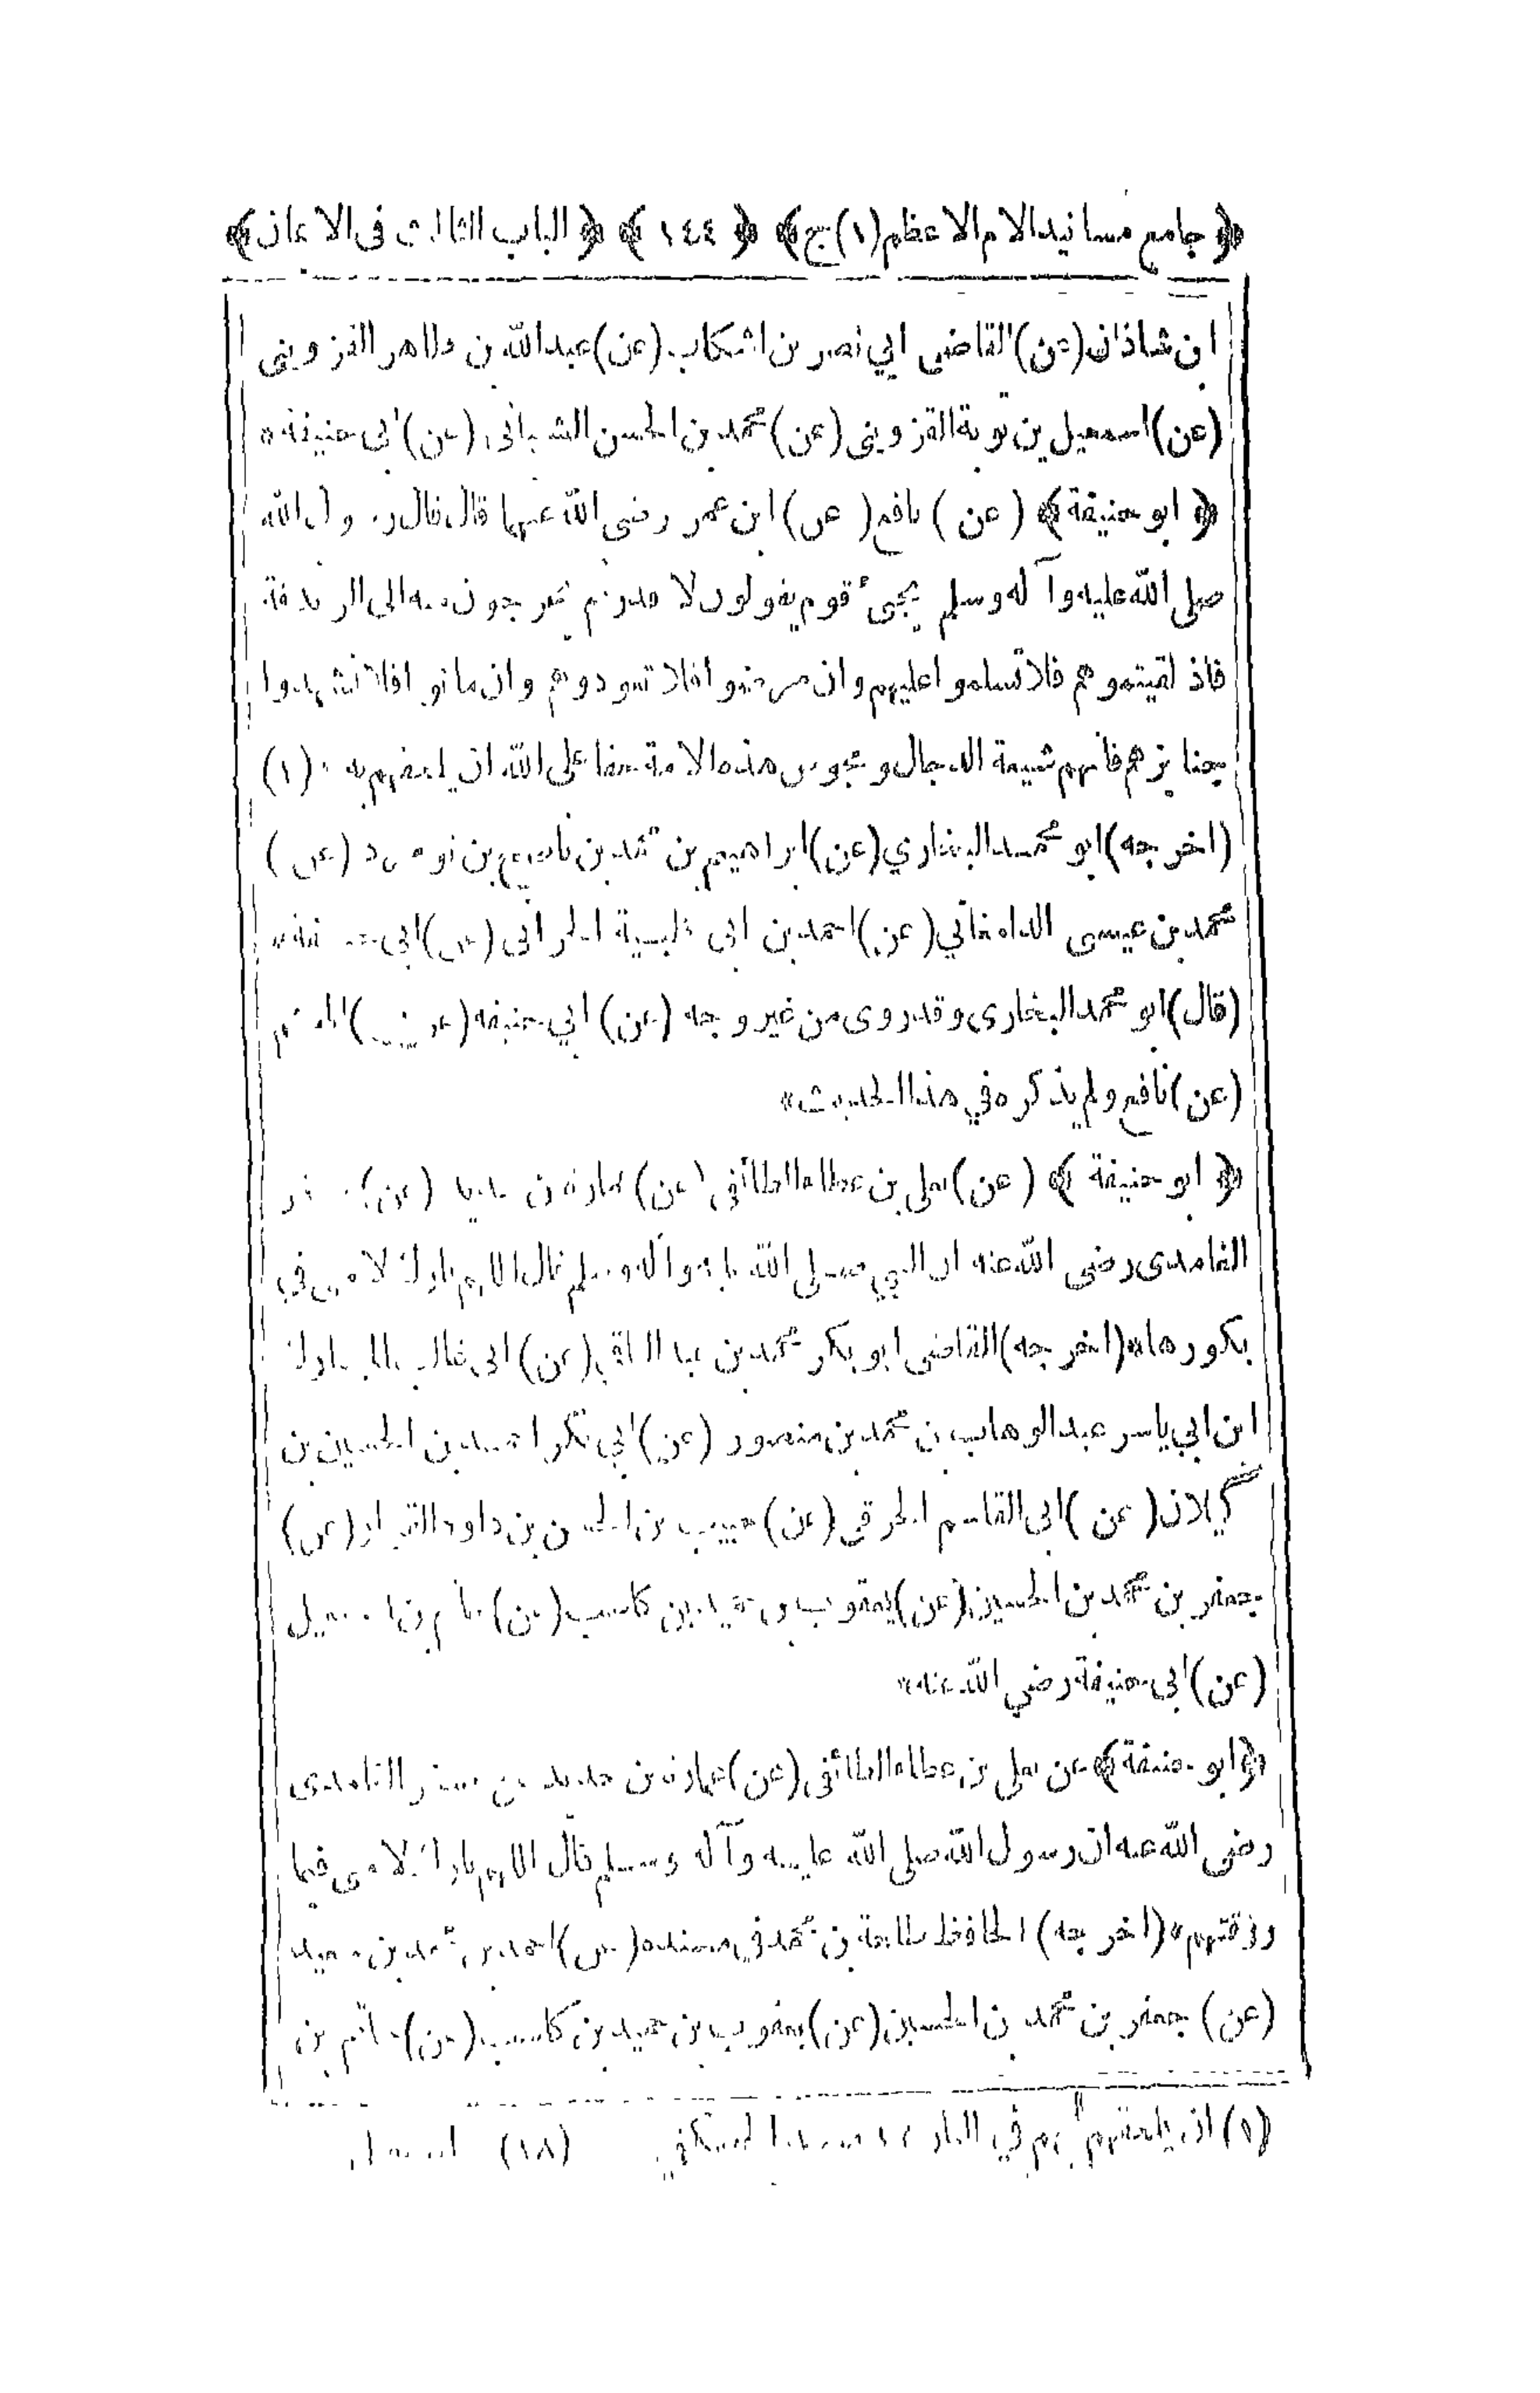 ﴿ جامع مسانيد الامام الاعظم (١) ج ﴾ ﴿ ١٤٤ ﴾ ﴿ الباب الثالث فى الايمان ﴾
ابن شاذان (عن) القاضى ابي نصر بن اشكاب (عن) عبدالله بن طاهر القزوينى
(عن) اسمعيل بن توبة القزوينى (عن) محمد بن الحسن الشيبانى (عن) ابى حنيفة *
﴿ ابو حنيفة ﴾ (عن) نافع (عن) ابن عمر رضى الله عنهما قال قال رسول الله
صلى الله عليه وآله وسلم يجىء قوم يقولون لا قدر ثم يخرجون منه الى الزندقة
فاذا لقيتموهم فلا تسلموا عليهم وان مرضوا فلا تعودوهم وان ماتوا فلا تشهدوا
جنائزهم فانهم شيعة الدجال ومجوس هذه الامة حقا على الله ان يلحقهم به (١)
(اخرجه) ابو محمد البخاري (عن) ابراهيم بن محمد بن (عن)
محمد بن عيسى الدامغاني (عن) احمد بن ابى طيبة الحرانى (عن) ابى حنيفة *
(قال) ابو محمد البخارى وقد روى من غير وجه (عن) ابي حنيفة (عن)
(عن) نافع ولم يذكره في هذا الحديث *
﴿ ابو حنيفة ﴾ (عن) يعلى بن عطاء الطائفى (عن) عمارة بن حديد (عن) صخر
الغامدى رضى الله عنه ان النبي صلى الله عليه وآله وسلم قال اللهم بارك لامتى في
بكورها * (اخرجه) القاضى ابو بكر محمد بن عبد الباقى (عن) ابى غالب المبارك
ابن ابي ياسر عبد الوهاب بن محمد بن منصور (عن) ابي بكر احمد بن الحسين بن
گيلان (عن) ابى القاسم الحرقى (عن) حبيب بن الحسن بن داود القزاز (عن)
جعفر بن محمد بن الحسين (عن) يعقوب بن حميد بن كاسب (عن) حاتم بن اسمعيل
(عن) ابى حنيفة رضي الله عنه *
﴿ ابو حنيفة ﴾ عن يعلى بن عطاء الطائفى (عن) عمارة بن حديد عن صخر الغامدى
رضى الله عنه ان رسول الله صلى الله عليه وآله وسلم قال اللهم بارك لامتى فيما
رزقتهم * (اخرجه) الحافظ طلحة بن محمد في مسنده (عن) احمد بن محمد بن سعيد
(عن) جعفر بن محمد بن الحسين (عن) يعقوب بن حميد بن كاسب (عن) حاتم بن
(١) ان يلحقهم بهم في النار ١٢ الحصكفي (١٨) اسمعيل